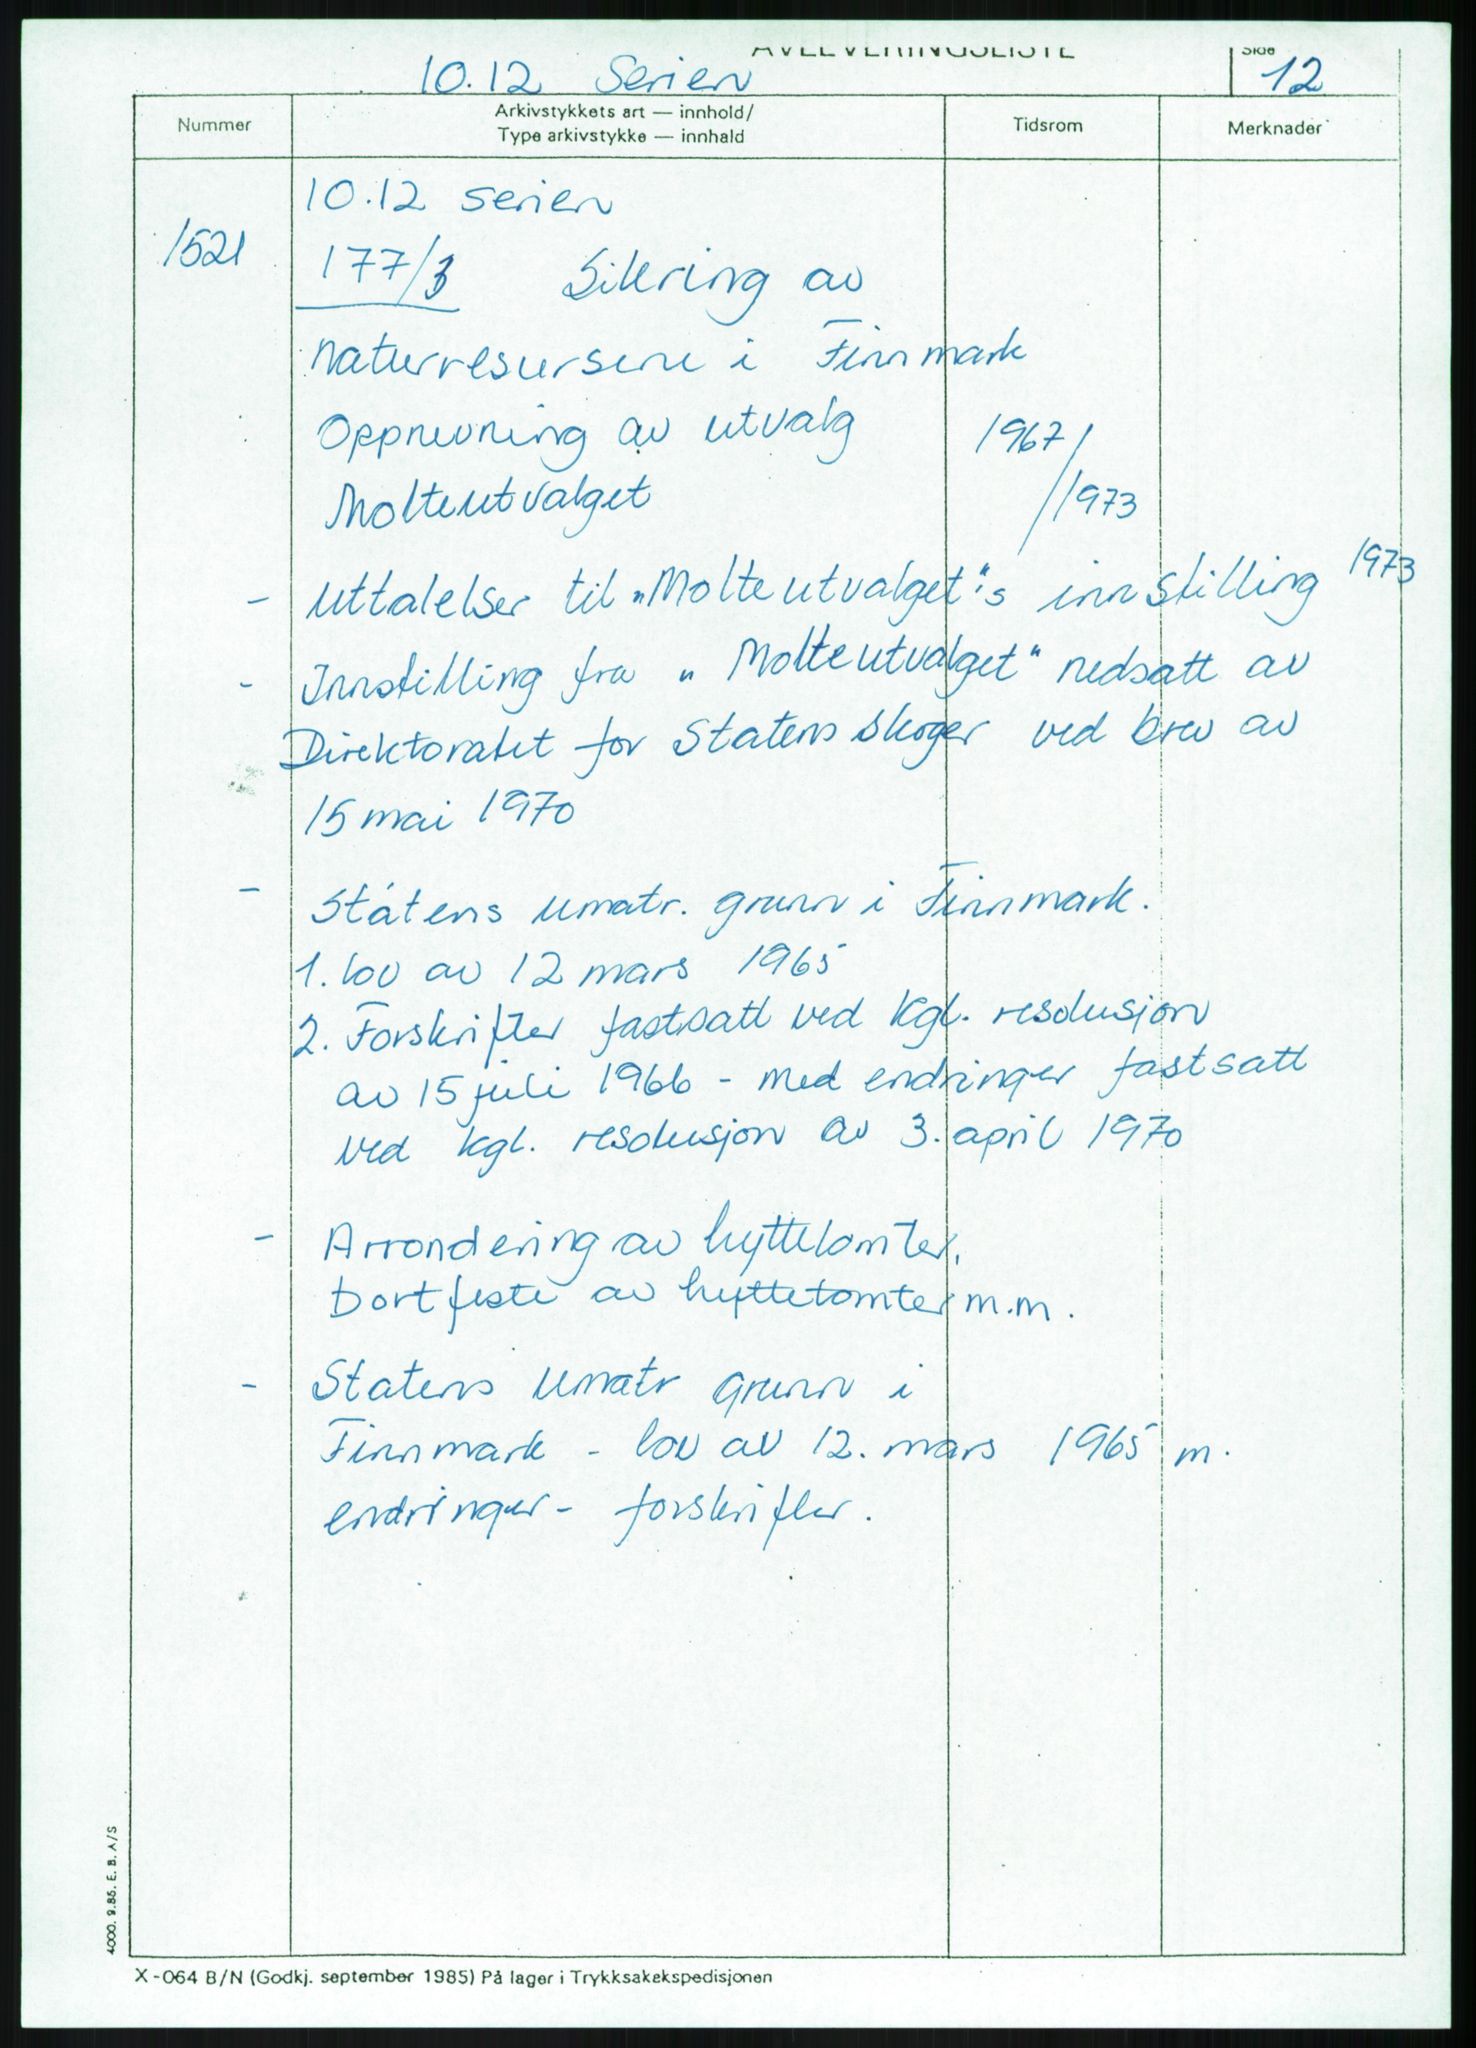 AVLEVERINGSLISTE
Side
10.12 Serien
12
Nummer
Arkivstykkets art — innhold/
Type arkivstykke — innhald
Tidsrom
Merknader
10.12 serien
1521
177/3 Sikring av
naturresursene i Finnmark
Oppnevning av utvalg
1967/
Molteutvalget
/1973
- Uttalelser til „Molteutvalget"s innstilling 1973
- Innstilling fra „Molteutvalget" nedsatt av
Direktoratet for Statens Skoger ved brev av
15 mai 1970
- Statens umatr. grunn i Finnmark.
1. lov av 12 mars 1965
2. Forskrifter fastsatt ved kgl. resolusjon
av 15 juli 1966 - med endringer fastsatt
ved kgl. resolusjon av 3. april 1970
- Arrondering av hyttetomter.
Bortfeste av hyttetomter m.m.
- Statens umatr grunn i
Finnmark - lov av 12. mars 1965 m.
endringer - forskrifter.
4000. 9.85. E. B. A/S
X-064 B/N (Godkj. september 1985) På lager i Trykksakekspedisjonen